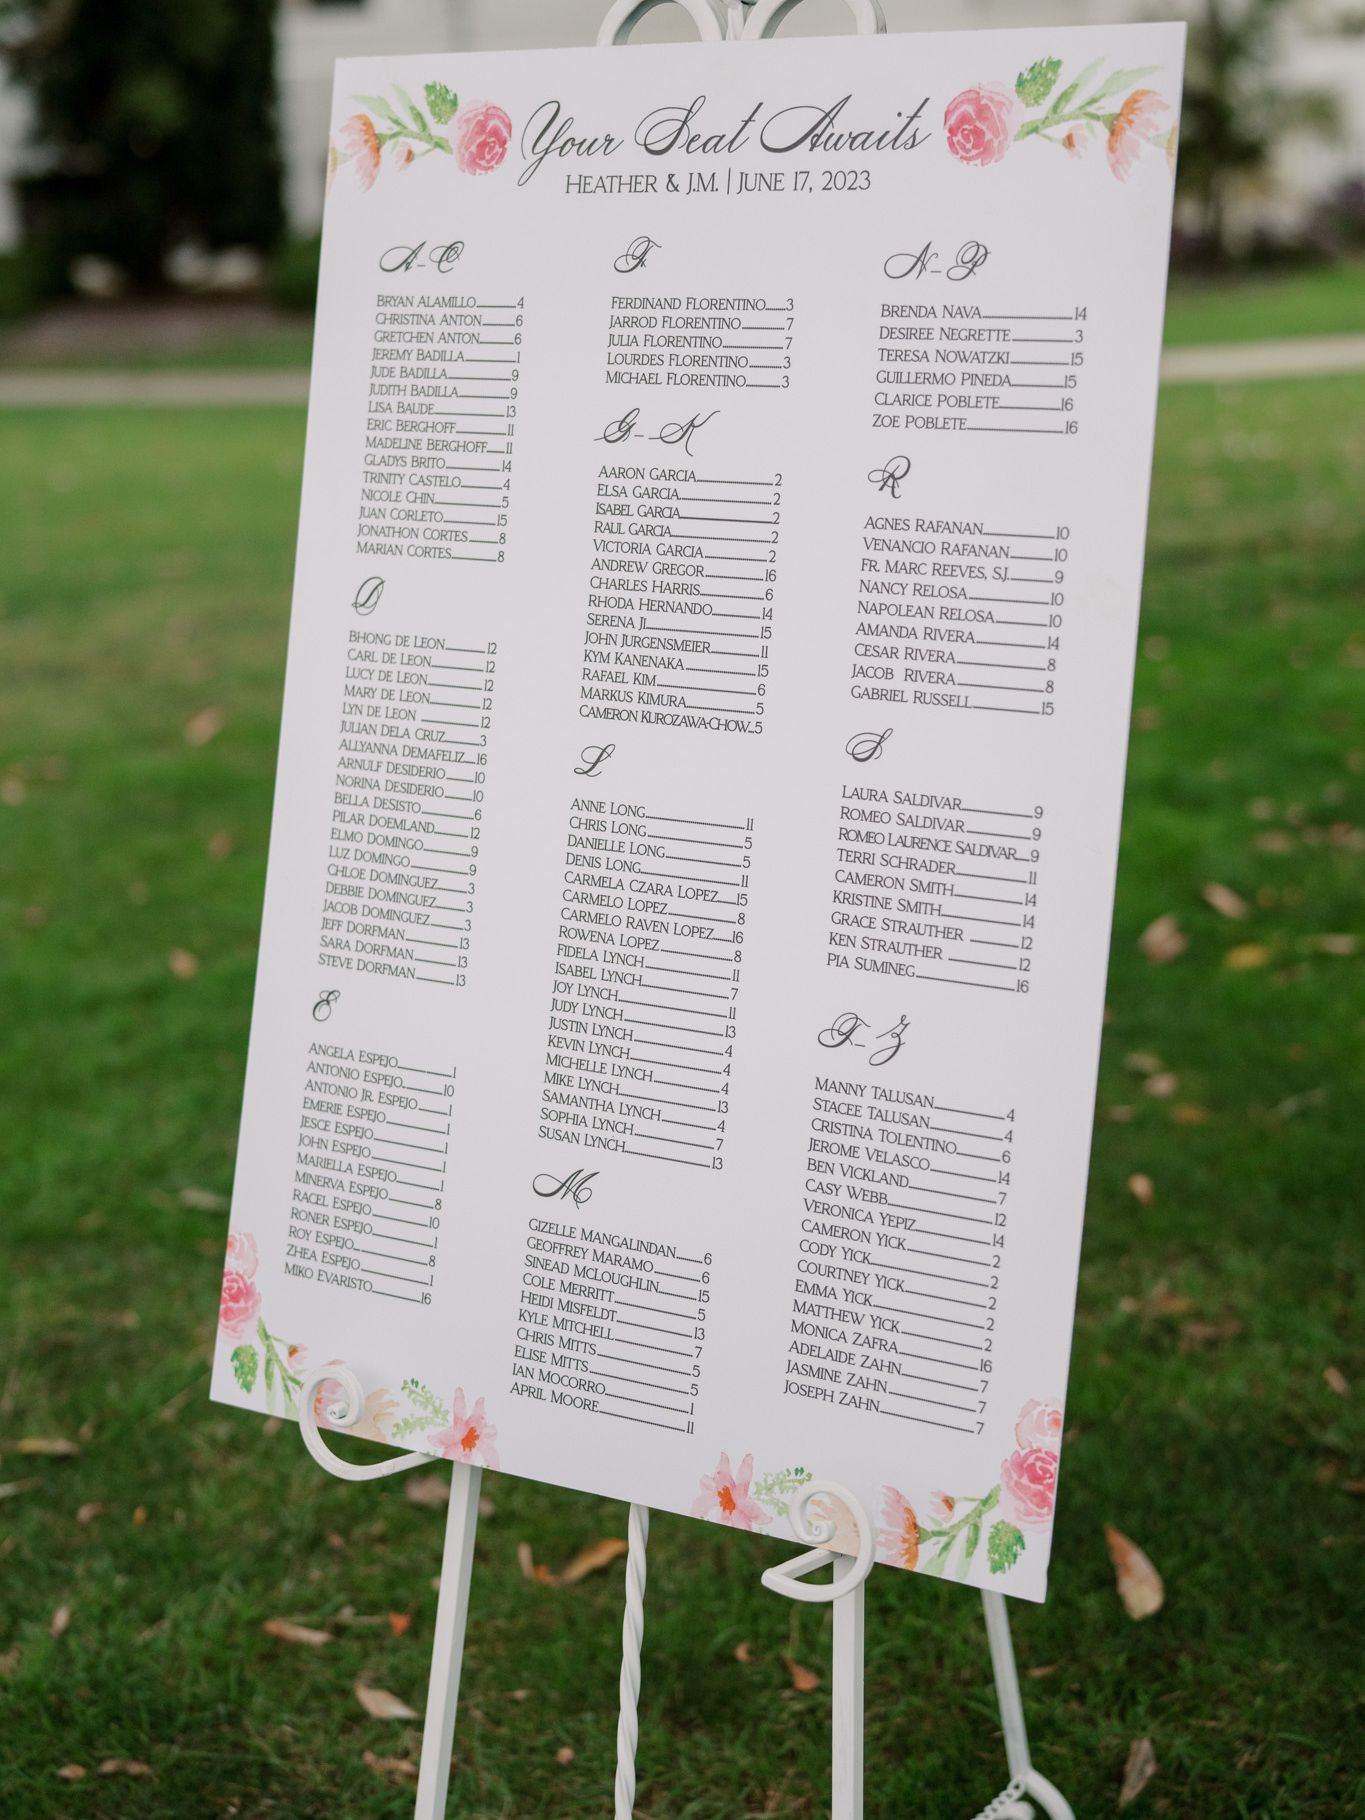 Your Seat Awaits
HEATHER & J.M. | JUNE 17, 2023
A-C
BRYAN ALAMILLO 4
CHRISTINA ANTON 6
GRETCHEN ANTON 6
JEREMY BADILLA 1
JUDE BADILLA 9
JUDITH BADILLA 9
LISA BAUDE 13
ERIC BERGHOFF 11
MADELINE BERGHOFF 11
GLADYS BRITO 14
TRINITY CASTELO 4
NICOLE CHIN 5
JUAN CORLETO 15
JONATHON CORTES 8
MARIAN CORTES 8
D
BHONG DE LEON 12
CARL DE LEON 12
LUCY DE LEON 12
MARY DE LEON 12
LYN DE LEON 12
JULIAN DELA CRUZ 3
ALLYANNA DEMAFELIZ 16
ARNULF DESIDERIO 10
NORINA DESIDERIO 10
BELLA DESISTO 6
PILAR DOEMLAND 12
ELMO DOMINGO 9
LUZ DOMINGO 9
CHLOE DOMINGUEZ 3
DEBBIE DOMINGUEZ 3
JACOB DOMINGUEZ 3
JEFF DORFMAN 13
SARA DORFMAN 13
STEVE DORFMAN 13
E
ANGELA ESPEJO 1
ANTONIO ESPEJO 10
ANTONIO JR. ESPEJO 1
EMERIE ESPEJO 1
JESCE ESPEJO 1
JOHN ESPEJO 1
MARIELLA ESPEJO 1
MINERVA ESPEJO 8
RACEL ESPEJO 10
RONER ESPEJO 1
ROY ESPEJO 8
ZHEA ESPEJO 1
MIKO EVARISTO 16
F
FERDINAND FLORENTINO 3
JARROD FLORENTINO 7
JULIA FLORENTINO 7
LOURDES FLORENTINO 3
MICHAEL FLORENTINO 3
G-K
AARON GARCIA 2
ELSA GARCIA 2
ISABEL GARCIA 2
RAUL GARCIA 2
VICTORIA GARCIA 2
ANDREW GREGOR 16
CHARLES HARRIS 6
RHODA HERNANDO 14
SERENA JI 15
JOHN JURGENSMEIER 11
KYM KANENAKA 15
RAFAEL KIM 6
MARKUS KIMURA 5
CAMERON KUROZAWA-CHOW 5
L
ANNE LONG 11
CHRIS LONG 5
DANIELLE LONG 5
DENIS LONG 11
CARMELA CZARA LOPEZ 15
CARMELO LOPEZ 8
CARMELO RAVEN LOPEZ 16
ROWENA LOPEZ 8
FIDELA LYNCH 11
ISABEL LYNCH 7
JOY LYNCH 11
JUDY LYNCH 13
JUSTIN LYNCH 4
KEVIN LYNCH 4
MICHELLE LYNCH 4
MIKE LYNCH 13
SAMANTHA LYNCH 4
SOPHIA LYNCH 7
SUSAN LYNCH 13
M
GIZELLE MANGALINDAN 6
GEOFFREY MARAMO 6
SINEAD MCLOUGHLIN 15
COLE MERRITT 5
HEIDI MISFELDT 13
KYLE MITCHELL 7
CHRIS MITTS 5
ELISE MITTS 5
IAN MOCORRO 1
APRIL MOORE 11
N-P
BRENDA NAVA 14
DESIREE NEGRETTE 3
TERESA NOWATZKI 15
GUILLERMO PINEDA 15
CLARICE POBLETE 16
ZOE POBLETE 16
R
AGNES RAFANAN 10
VENANCIO RAFANAN 10
FR. MARC REEVES, S.J. 9
NANCY RELOSA 10
NAPOLEAN RELOSA 10
AMANDA RIVERA 14
CESAR RIVERA 8
JACOB RIVERA 8
GABRIEL RUSSELL 15
S
LAURA SALDIVAR 9
ROMEO SALDIVAR 9
ROMEO LAURENCE SALDIVAR 9
TERRI SCHRADER 11
CAMERON SMITH 14
KRISTINE SMITH 14
GRACE STRAUTHER 12
KEN STRAUTHER 12
PIA SUMINEG 16
T-Z
MANNY TALUSAN 4
STACEE TALUSAN 4
CRISTINA TOLENTINO 6
JEROME VELASCO 14
BEN VICKLAND 7
CASY WEBB 12
VERONICA YEPIZ 14
CAMERON YICK 2
CODY YICK 2
COURTNEY YICK 2
EMMA YICK 2
MATTHEW YICK 2
MONICA ZAFRA 16
ADELAIDE ZAHN 7
JASMINE ZAHN 7
JOSEPH ZAHN 7